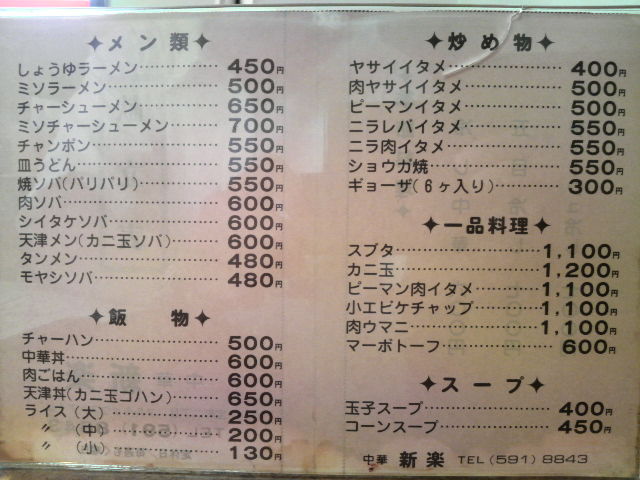 ✦メン類✦
しょうゆラーメン 450円
ミソラーメン 500円
チャーシューメン 650円
ミソチャーシューメン 700円
チャンポン 550円
皿うどん 550円
焼ソバ(パリパリ) 550円
肉ソバ 600円
シイタケソバ 600円
天津メン(カニ玉ソバ) 600円
タンメン 480円
モヤシソバ 480円
✦飯物✦
チャーハン 500円
中華丼 600円
肉ごはん 600円
天津丼(カニ玉ゴハン) 650円
ライス(大) 250円
〃(中) 200円
〃(小) 130円
✦炒め物✦
ヤサイイタメ 400円
肉ヤサイイタメ 500円
ピーマンイタメ 500円
ニラレバイタメ 550円
ニラ肉イタメ 550円
ショウガ焼 550円
ギョーザ(6ヶ入り) 300円
✦一品料理✦
スブタ 1,100円
カニ玉 1,200円
ピーマン肉イタメ 1,100円
小エビケチャップ 1,100円
肉ウマニ 1,100円
マーボトーフ 600円
✦スープ✦
玉子スープ 400円
コーンスープ 450円
中華 新楽 TEL(591)8843